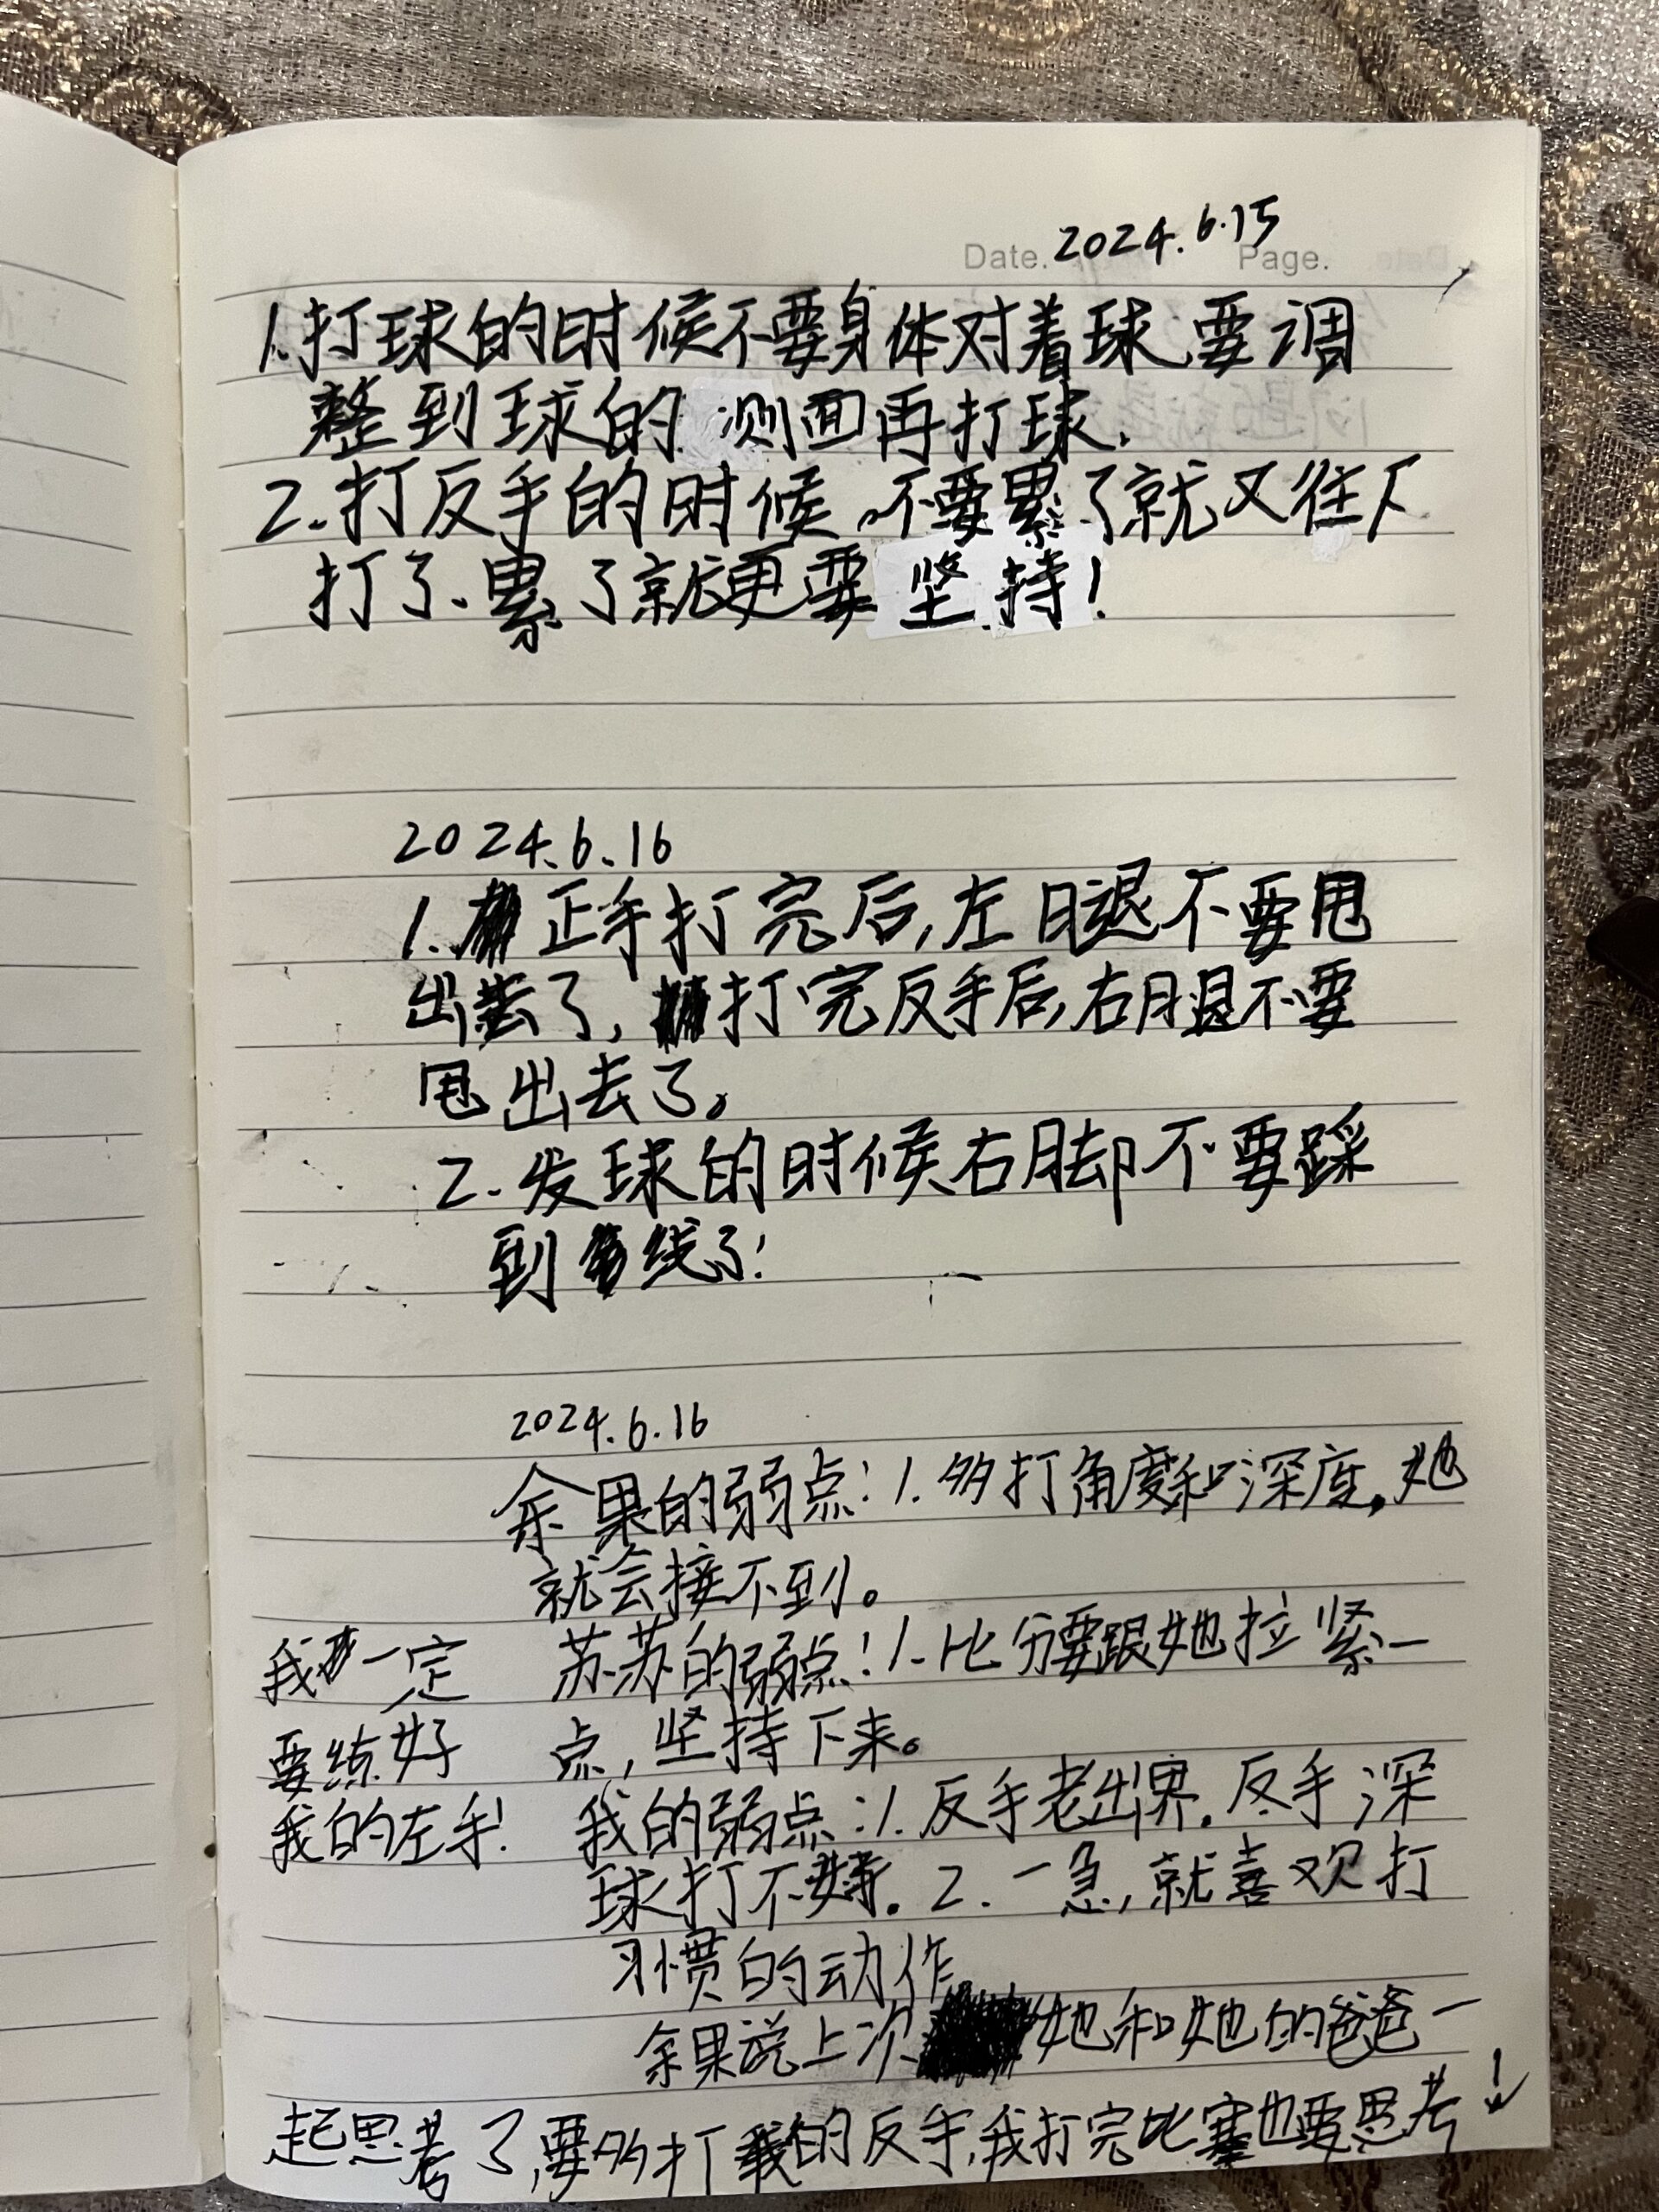 Date. 2024.6.15 Page.
1.打球的时候不要身体对着球,要调
整到球的测面再打球.
2.打反手的时候,不要累了就又往下
打了、累了就更要坚持!
2024.6.16
1.正手打完后,左腿不要甩
出去了,打完反手后,右腿不要
甩出去了。
2.发球的时候右脚不要踩
到线了!
2024.6.16
余果的弱点:1.多打角度和深度,她
就会接不到。
苏苏的弱点:1.比分要跟她拉紧一
点,坚持下来。
我一定
要练好
我的左手!
我的弱点:1.反手老出界.反手深
球打不好.2.一急,就喜欢打
习惯的动作
余果说上次她和她的爸爸一
起思考了,要多打我的反手,我打完比赛也要思考!